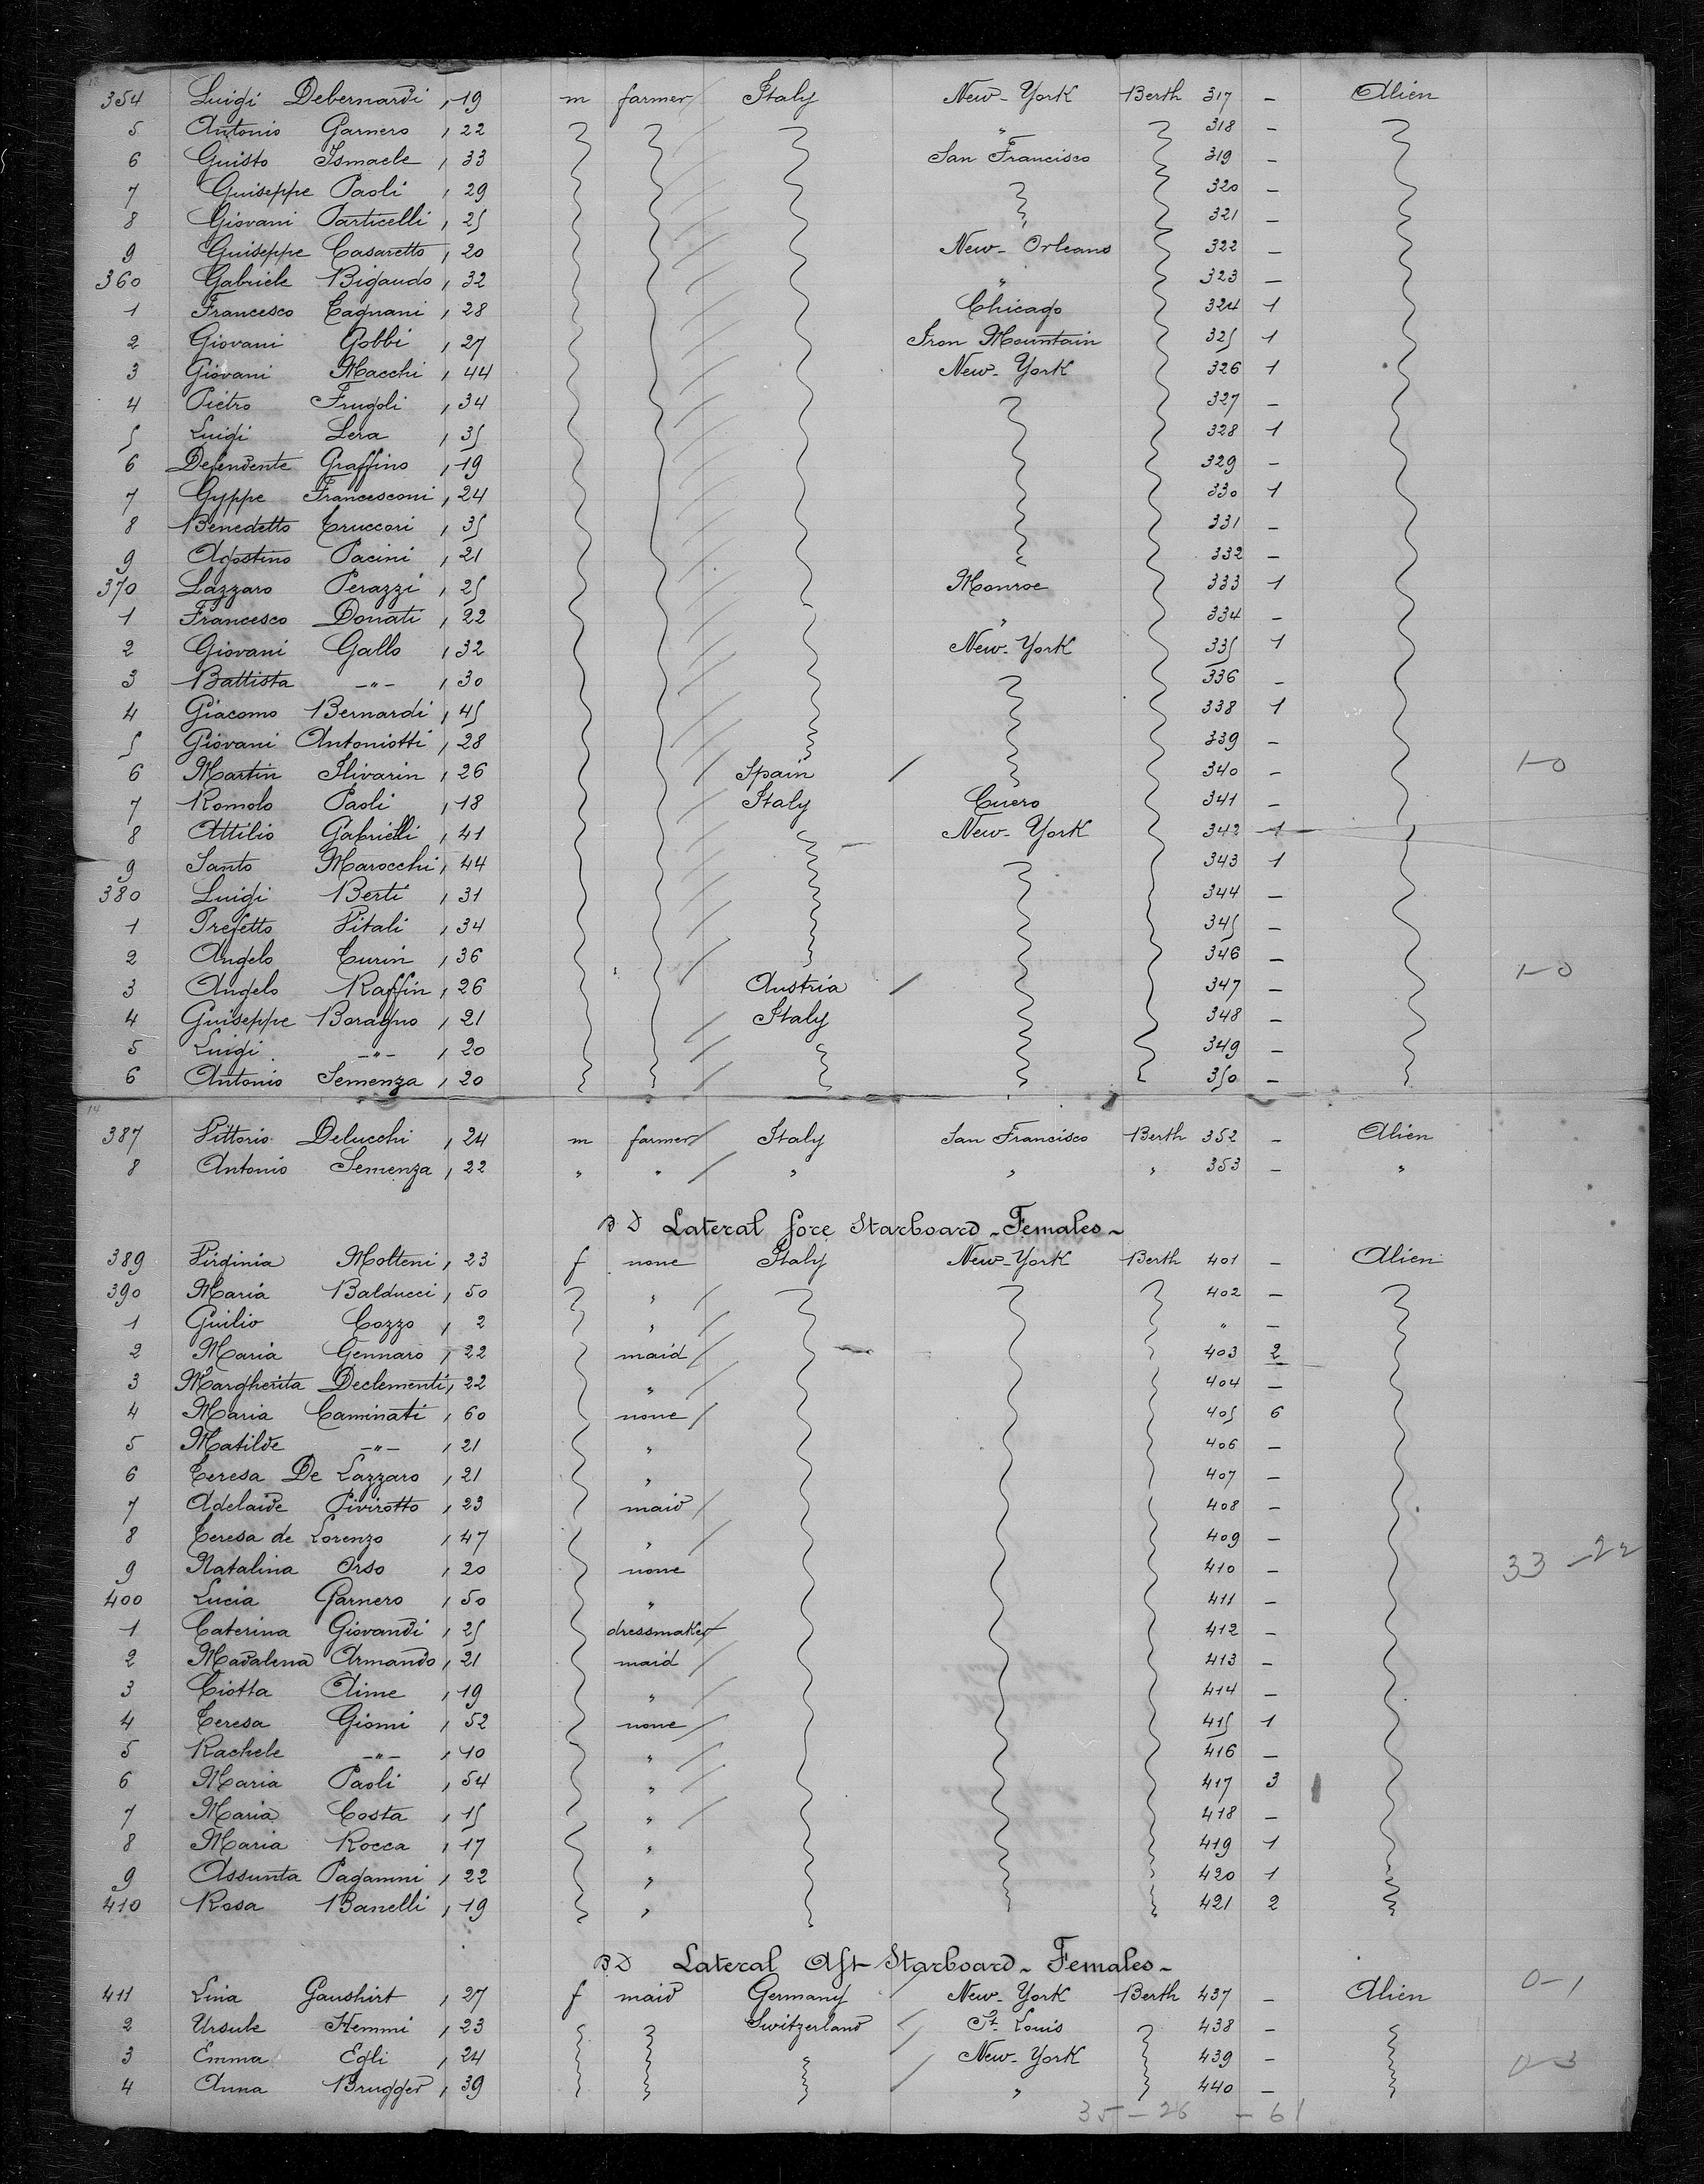 354 Luigi Debernardi , 19 m farmer Italy New-York Berth 317 - Alien
5 Antonio Garnero , 22 " 318 -
6 Guisto Ismaele , 33 San Francisco 319 -
7 Guiseppe Paoli , 29 320 -
8 Giovani Particelli , 25 321 -
9 Guiseppe Casaretto , 20 New-Orleans 322 -
360 Gabriele Bigando , 32 " 323 -
1 Francesco Cagnani , 28 Chicago 324 1
2 Giovani Gobbi , 27 Iron Mountain 325 1
3 Giovani Macchi , 44 New-York 326 1
4 Pietro Frugoli , 34 327 -
5 Luigi Lera , 35 328 1
6 Defendente Graffino , 19 329 -
7 Gyppe Francesconi , 24 330 1
8 Benedetto Truccori , 35 331 -
9 Agostino Pacini , 21 332 -
370 Lazzaro Perazzi , 25 Monroe 333 1
1 Francesco Donati , 22 " 334 -
2 Giovani Gallo , 32 New-York 335 1
3 Battista -"- , 30 336 -
4 Giacomo Bernardi , 45 338 1
5 Giovani Antoniotti , 28 339 -
6 Martin Ilivarin , 26 Spain 340 - 1-0
7 Romolo Paoli , 18 Italy Cuero 341 -
8 Attilio Gabrielli , 41 New-York 342 1
9 Santo Marocchi , 44 343 1
380 Luigi Berti , 31 344 -
1 Prefetto Vitali , 34 345 -
2 Angelo Turin , 36 346 -
3 Angelo Raffin , 26 Austria 347 - 1-0
4 Guiseppe Boragno , 21 Italy 348 -
5 Luigi -"- , 20 349 -
6 Antonio Semenza , 20 350 -
14
387 Vittorio Delucchi , 24 m farmer Italy San Francisco Berth 352 - Alien
8 Antonio Semenza , 22 " " " " " 353 - "
B D Lateral fore Starboard - Females -
389 Virginia Molteni , 23 f none Italy New-York Berth 401 - Alien
390 Maria Balducci , 50 " 402 -
1 Guilio Cozzo , 2 " " -
2 Maria Gennaro , 22 maid 403 2
3 Margherita Declementi , 22 " 404 -
4 Maria Caminati , 60 none 405 6
5 Matilde -"- , 21 " 406 -
6 Teresa De Lazzaro , 21 " 407 -
7 Adelaide Pivirotto , 23 maid 408 -
8 Teresa de Lorenzo , 47 " 409 -
9 Natalina Orso , 20 none 410 - 33 - 22
400 Lucia Garnero , 50 " 411 -
1 Caterina Giovandi , 25 dressmaker 412 -
2 Madalena Armando , 21 maid 413 -
3 Ciotta Aime , 19 " 414 -
4 Teresa Giomi , 52 none 415 1
5 Rachele -"- , 10 " 416 -
6 Maria Paoli , 54 " 417 3
7 Maria Costa , 15 " 418 -
8 Maria Rocca , 17 " 419 1
9 Assunta Paganini , 22 " 420 1
410 Rosa Banelli , 19 " 421 2
B D Lateral Aft Starboard - Females -
411 Lina Gaushirt , 27 f maid Germany New-York Berth 437 - Alien 0-1
2 Ursule Hemmi , 23 Switzerland St. Louis 438 -
3 Emma Egli , 24 New-York 439 - 0-3
4 Anna Brugger , 39 " 440 -
35 - 26 - 61